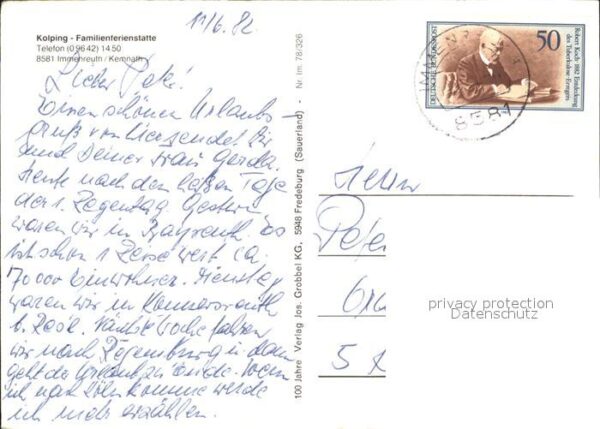 11/6.82
Kolping - Familienferienstätte
Telefon (0 96 42) 14 50
8581 Immenreuth / Kemnath
Lieber Peter!
einen schönen Urlaubs-
gruß von hier sendet Dir
und Deiner Frau Gerda.
Heute nach den heißen Tage
der 1. Regentag. Gestern
waren wir in Bayreuth. Es
ist schon 1 Reise wert ca.
70 000 Einwohner. Dienstag
waren wir in Konnersreuth
b. Resl. nächste Woche fahren
wir nach Regensburg u. dann
geht der Urlaub zu Ende. Wenn
ich nach Köln komme werde
ich mehr erzählen.
100 Jahre Verlag Jos. Grobbel KG, 5948 Fredeburg (Sauerland) - Nr. Im. 78/326
50
Robert Koch 1882 Entdeckung
des Tuberkulose-Erregers
DEUTSCHE BUNDESPOST
8581
Herrn
Peter
5
privacy protection
Datenschutz